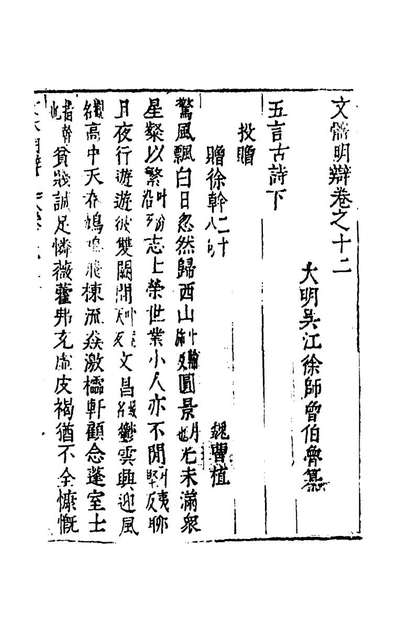 文體明辯卷之十二
大明吳江徐師曾伯魯纂
五言古詩下
投贈
贈徐幹二十八句 魏曹植
驚風飄白日忽然歸西山圓景月也光未滿衆
星粲以繁志士榮世業小人亦不閒聊
且夜行遊遊彼雙闕間文昌鬱雲興迎風
高中天春鳩鳴飛棟流猋激櫺軒顧念蓬室士
貧賤誠足憐薇藿弗充虛皮褐猶不全慷慨